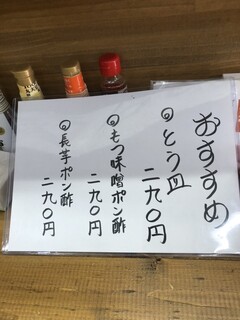 おすすめ
◎とう皿
二九〇円
◎もつ味噌ポン酢
二九〇円
◎長芋ポン酢
二九〇円